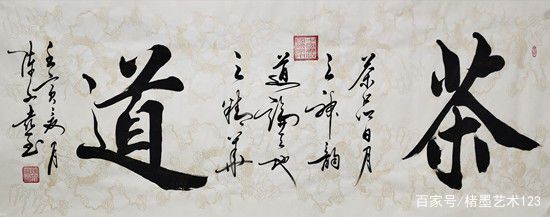 茶
茶品日月
之神韻
道天地
之精華
道
壬寅夏月
百家号/楮墨艺术123